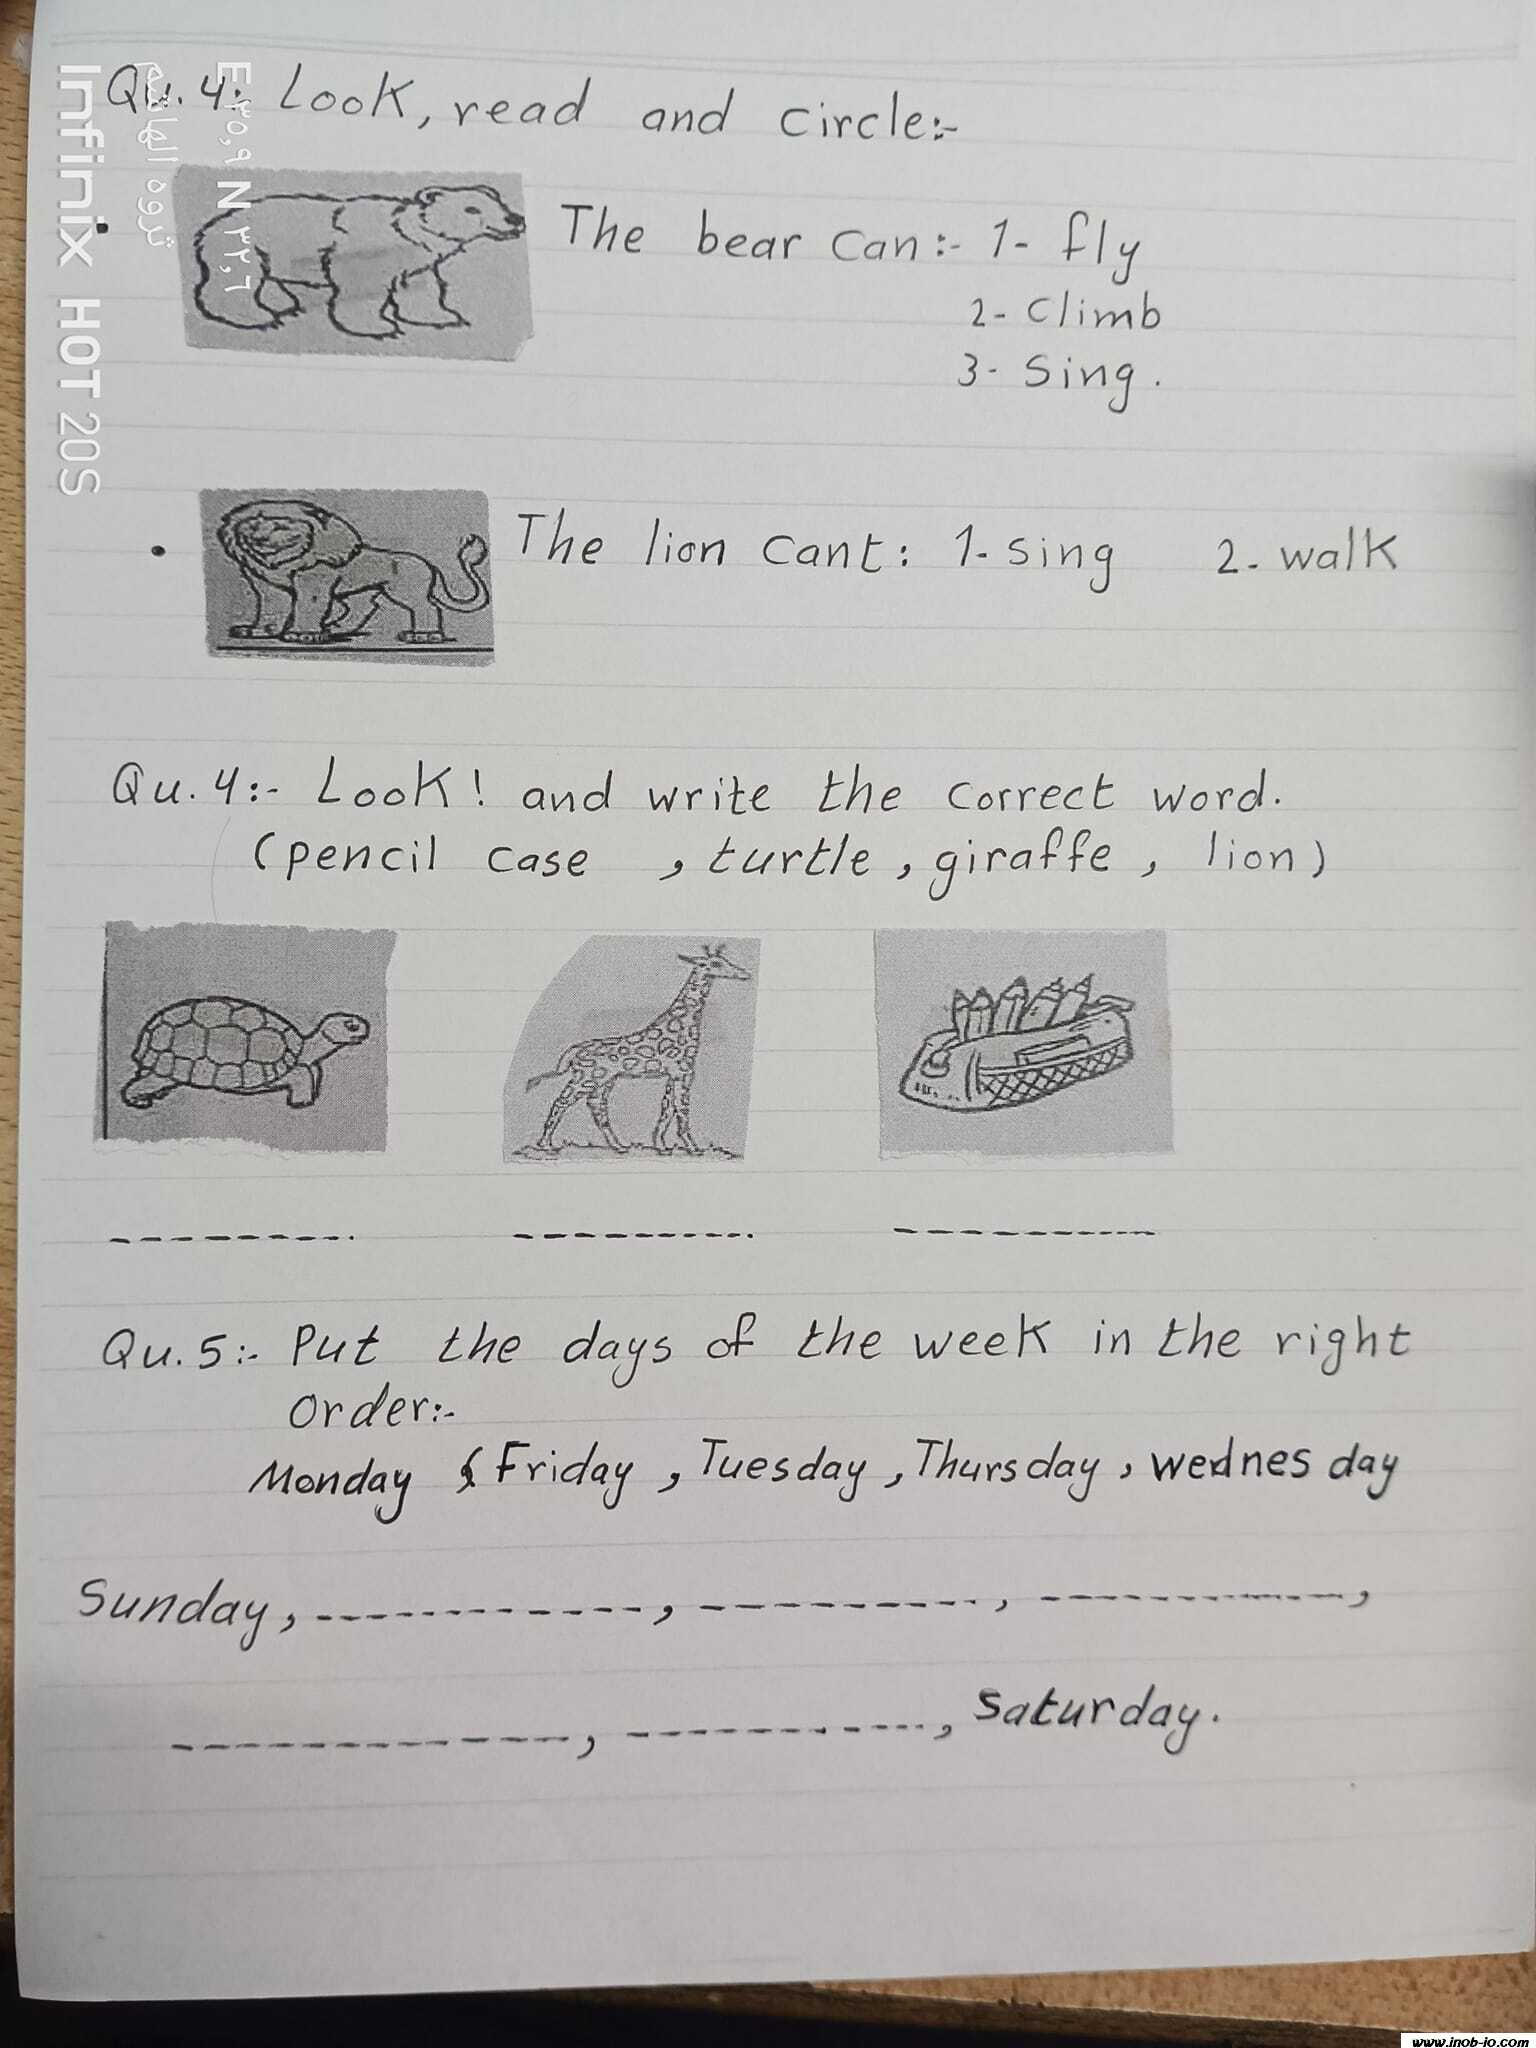 Qu.4: Look, read and circle:-
The bear can:- 1- fly
2- Climb
3- Sing.
The lion cant: 1- sing 2- walk
Qu.4:- Look! and write the correct word.
(pencil case , turtle , giraffe , lion)
Qu.5:- Put the days of the week in the right
order:-
Monday , Friday , Tuesday , Thursday , wednesday
Sunday, ------------, ----------, ------------,
-------------, -----------, Saturday.
Infinix HOT 20S
ثروه الهاشم
E ٣٥,٩ N ٣٢,٦
www.inob-jo.com